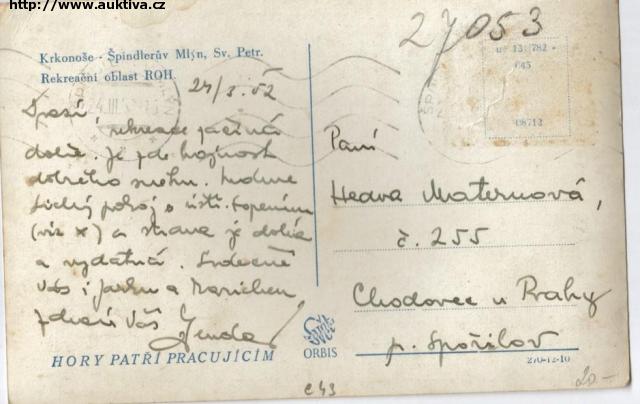 http://www.auktiva.cz
27053
Krkonoše - Špindlerův Mlýn, Sv. Petr.
Rekreační oblast ROH.
24/3.52
rekreace začíná
dobře. Je zde hojnost
dobrého sněhu. Máme
hezký pokoj s ústř. topením
(viz x) a strava je dobrá
a vydatná. Srdečně
Vás i Jarku a Marichen
zdraví Váš Jenda
HORY PATŘÍ PRACUJÍCÍM
ORBIS
u 13 782 -
645
08712
Paní
Hedva Maternová,
č. 255
Chodovec u Prahy
p. Spořilov
270-12-10
c 43
20.-